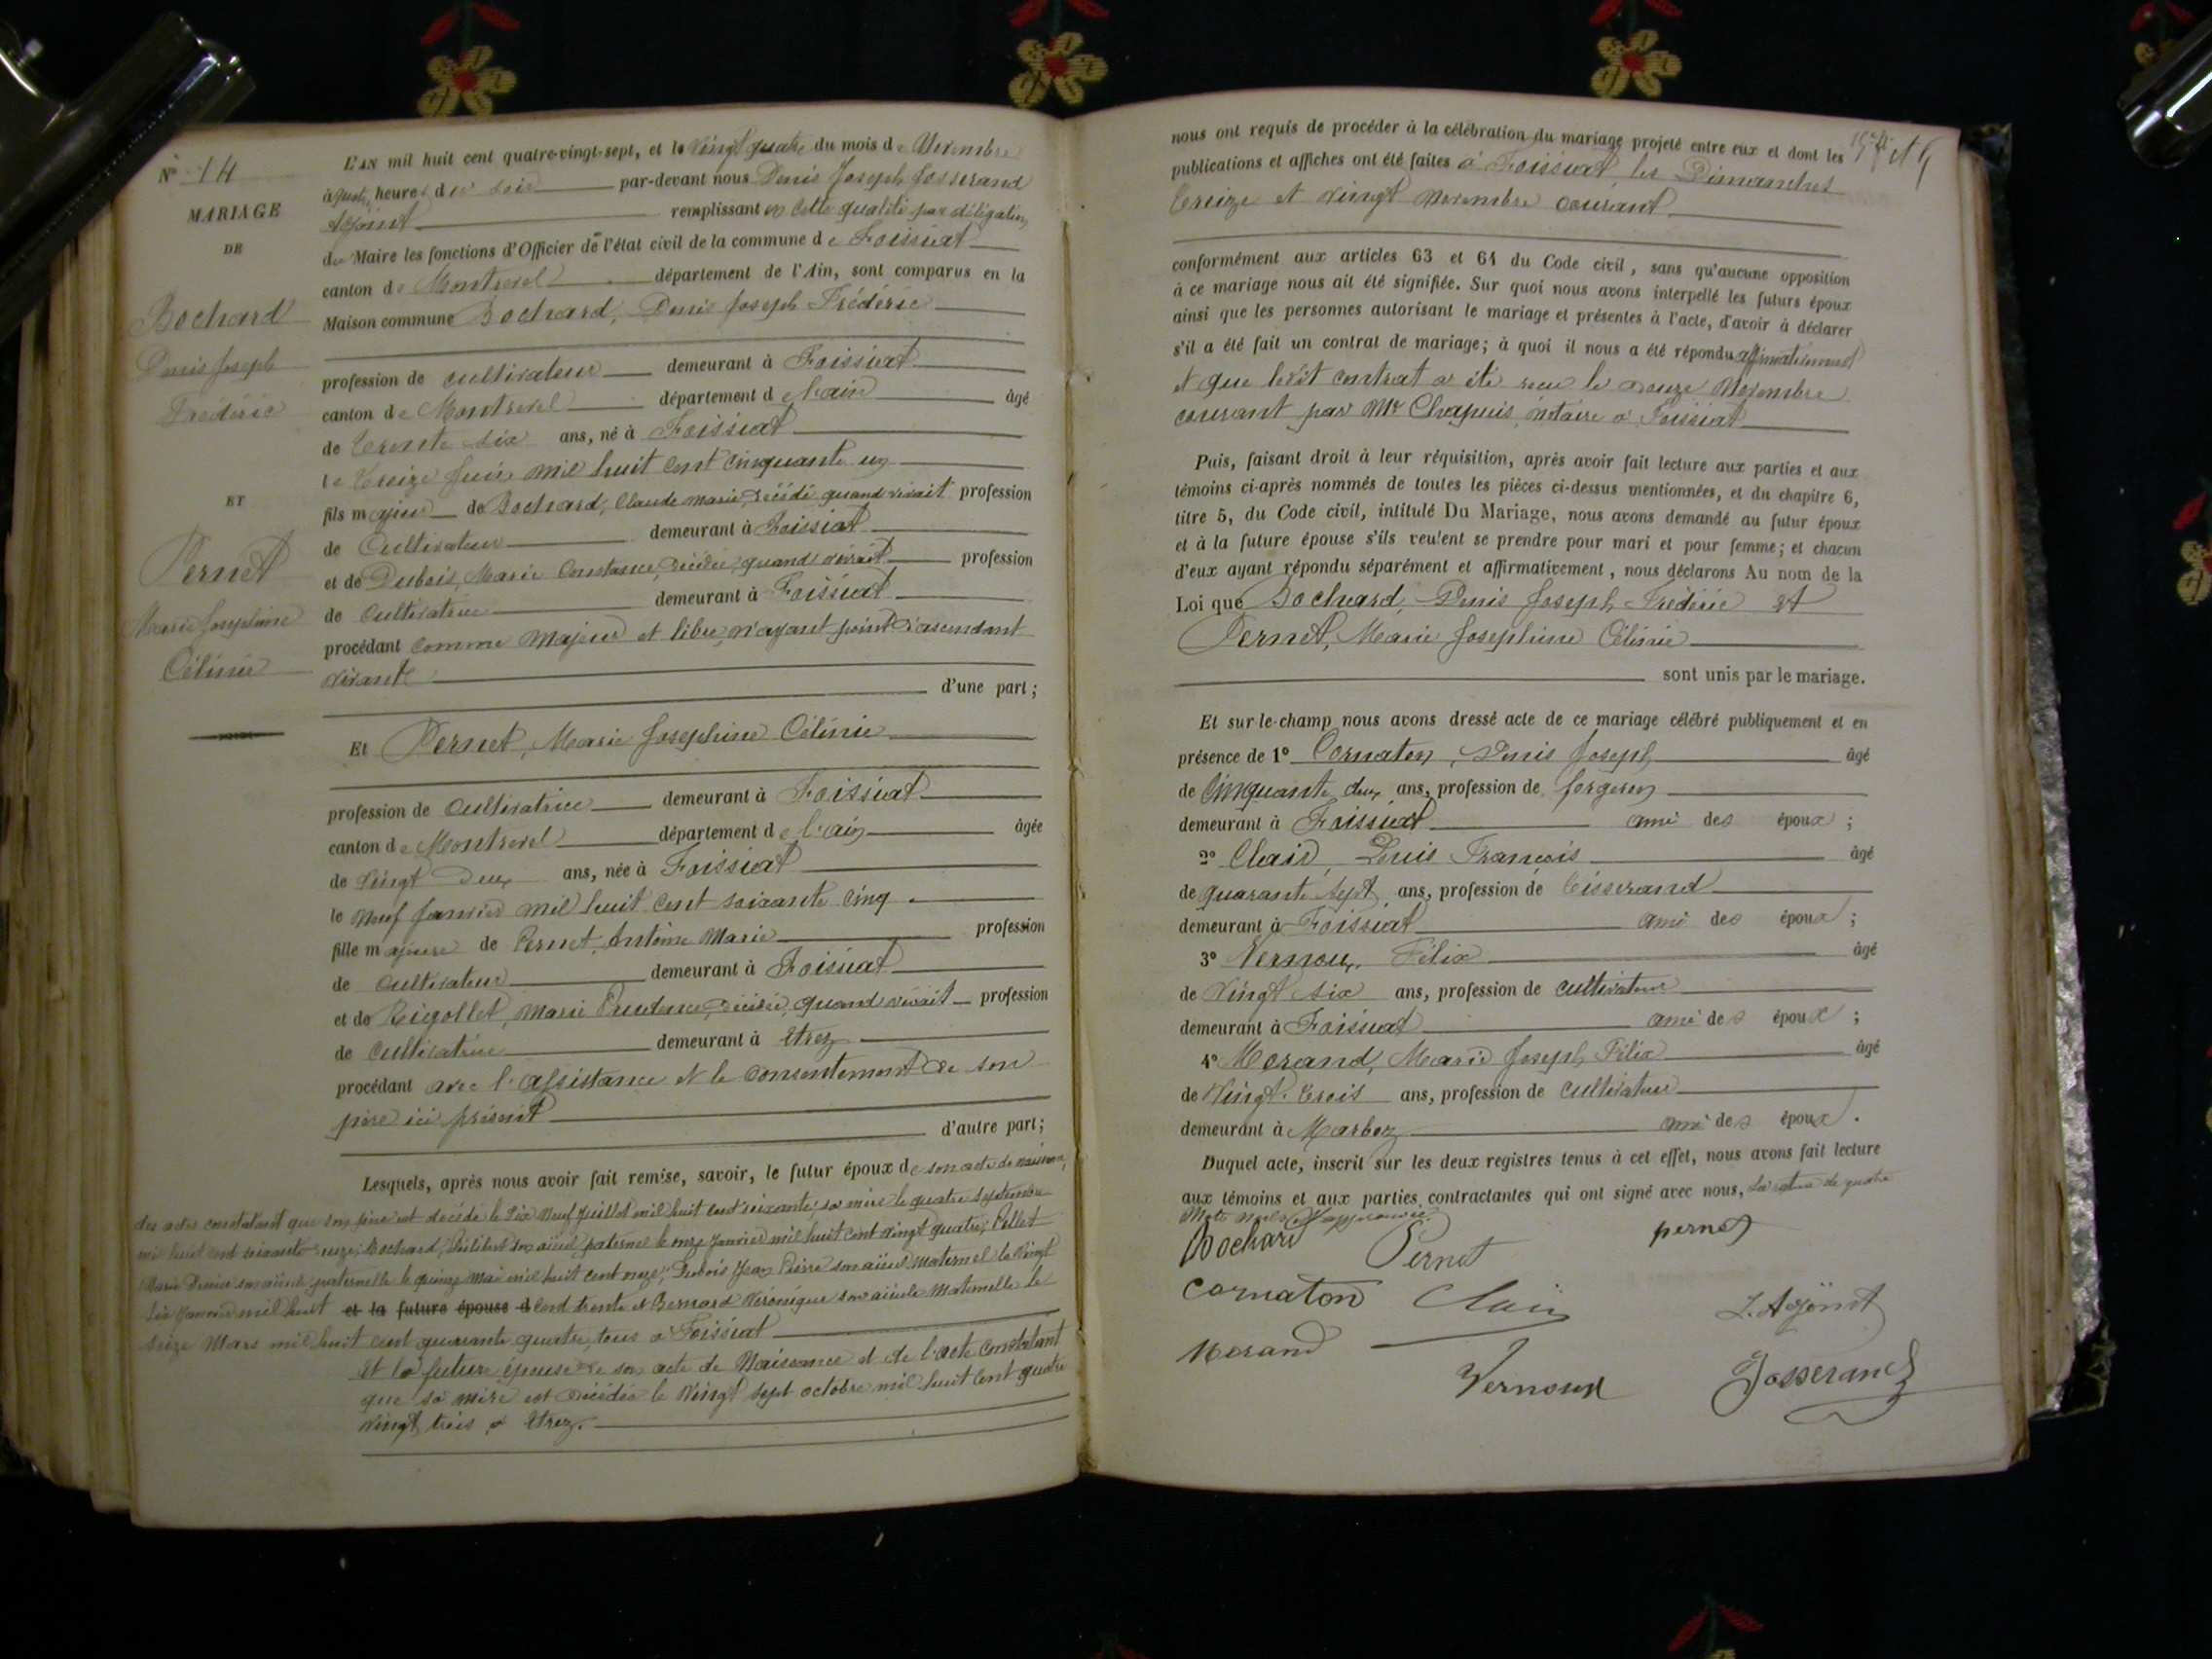 N° 14
MARIAGE
DE
Bochard
Denis Joseph
Frédéric
ET
Pernet
Marie Josephine
Célinie
L'AN mil huit cent quatre-vingt-sept, et le vingt quatre du mois de Novembre
à quatre heures du soir par-devant nous Denis Joseph Josserand
Adjoint remplissant en cette qualité par délégation
du Maire les fonctions d'Officier de l'état civil de la commune de Foissiat
canton de Montrevel département de l'Ain, sont comparus en la
Maison commune Bochard, Denis Joseph Frédéric
profession de cultivateur demeurant à Foissiat
canton de Montrevel département de l'ain âgé
de trente six ans, né à Foissiat
le treize juin mil huit cent cinquante un
fils majeur de Bochard, Claude Marie, décédé quand vivait profession
de Cultivateur demeurant à Foissiat
et de Dubois, Marie Constance, décédée, quand vivait profession
de Cultivatrice demeurant à Foissiat
procédant comme Majeur et libre, n'ayant point d'ascendant
vivants d'une part ;
Et Pernet, Marie Josephine Célinie
profession de Cultivatrice demeurant à Foissiat
canton de Montrevel département de l'ain âgée
de vingt deux ans, née à Foissiat
le neuf janvier mil huit cent soixante cinq
fille majeure de Pernet, Antoine Marie profession
de Cultivateur demeurant à Foissiat
et de Rigollet, Marie Prudence, décédée, quand vivait profession
de Cultivatrice demeurant à Etrez
procédant avec l'assistance et le consentement de son
père ici présent d'autre part ;
Lesquels, après nous avoir fait remise, savoir, le futur époux de son acte de naissance,
des actes constatant que son père est décédé le dix neuf juillet mil huit cent soixante, sa mère le quatre septembre
mil huit cent soixante Bochard, son aïeul paternel le onze janvier mil huit cent vingt quatre, Pellet
Marie Denise son aïeule paternelle le quinze mai mil huit cent onze, Dubois Jean Pierre son aïeul maternel le vingt
six janvier mil huit et la future épouse d cent trente et Bernard Véronique son aïeule Maternelle le
seize Mars mil huit cent quarante quatre, tous à Foissiat
et la future épouse de son acte de Naissance et de l'acte constatant
que sa mère est décédée le vingt sept octobre mil huit cent quatre
vingt trois à Etrez.
nous ont requis de procéder à la célébration du mariage projeté entre eux et dont les
publications et affiches ont été faites à Foissiat, les Dimanches
treize et vingt Novembre courant
conformément aux articles 63 et 64 du Code civil, sans qu'aucune opposition
à ce mariage nous ait été signifiée. Sur quoi nous avons interpellé les futurs époux
ainsi que les personnes autorisant le mariage et présentes à l'acte, d'avoir à déclarer
s'il a été fait un contrat de mariage ; à quoi il nous a été répondu affirmativement
et que ledit contrat a été reçu le douze Novembre
courant par Me Chapuis, notaire à Foissiat
Puis, faisant droit à leur réquisition, après avoir fait lecture aux parties et aux
témoins ci-après nommés de toutes les pièces ci-dessus mentionnées, et du chapitre 6,
titre 5, du Code civil, intitulé Du Mariage, nous avons demandé au futur époux
et à la future épouse s'ils veulent se prendre pour mari et pour femme ; et chacun
d'eux ayant répondu séparément et affirmativement, nous déclarons Au nom de la
Loi que Bochard, Denis Joseph Frédéric et
Pernet, Marie Josephine Célinie
sont unis par le mariage.
Et sur-le-champ nous avons dressé acte de ce mariage célébré publiquement et en
présence de 1° Cornaton, Denis Joseph âgé
de Cinquante deux ans, profession de forgeron
demeurant à Foissiat ami des époux ;
2° Clair, Louis François âgé
de quarante sept ans, profession de tisserand
demeurant à Foissiat ami des époux ;
3° Vernoux, Félix âgé
de vingt six ans, profession de cultivateur
demeurant à Foissiat ami des époux ;
4° Morand, Marie Joseph Félix âgé
de vingt trois ans, profession de cultivateur
demeurant à Marboz ami des époux.
Duquel acte, inscrit sur les deux registres tenus à cet effet, nous avons fait lecture
aux témoins et aux parties contractantes qui ont signé avec nous, La rature de quatre
Mots nuls approuvée.
Bochard Pernet pernet
Cornaton Clair L. Adjoint
Morand Vernoux Josserand